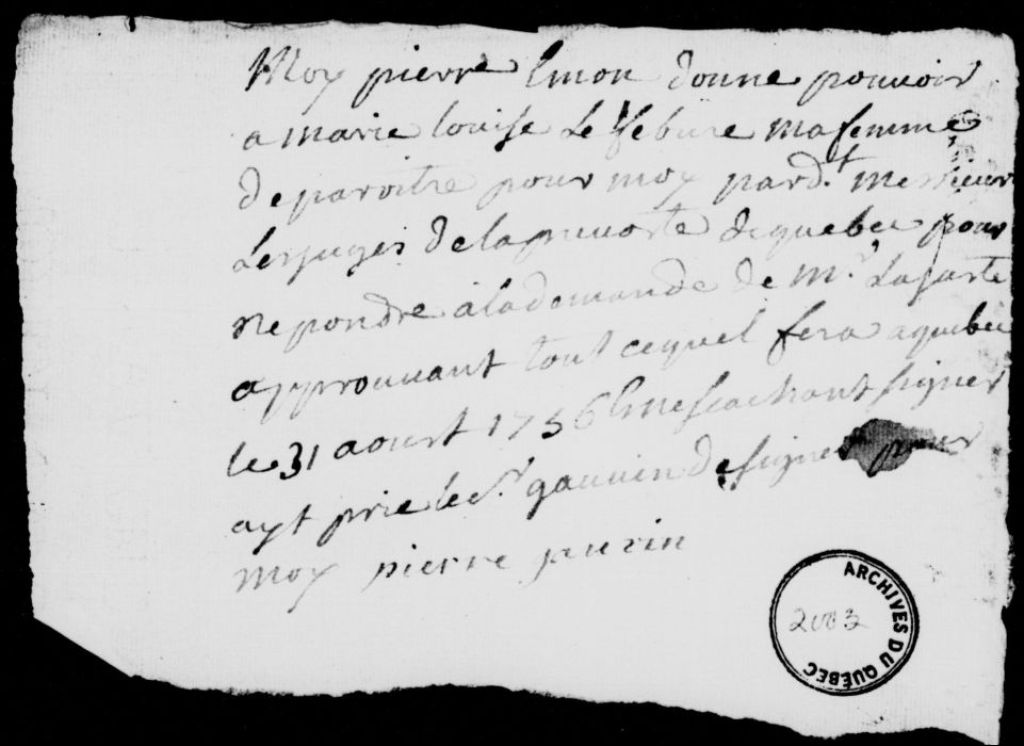 Moy pierre Emon donne pouvoir
a marie louise Le febure ma femme
de paroitre pour moy pard.t messieurs
Les juges de la prevoste de quebec pour
Repondre a la demande de Mr Laparte
approuvant tout ce quel fera a quebec
le 31 aoust 1756 ne scachant signer
ayt prie le Sr gauvin de signer pour
moy pierre gauvin
ARCHIVES DU QUÉBEC
2003